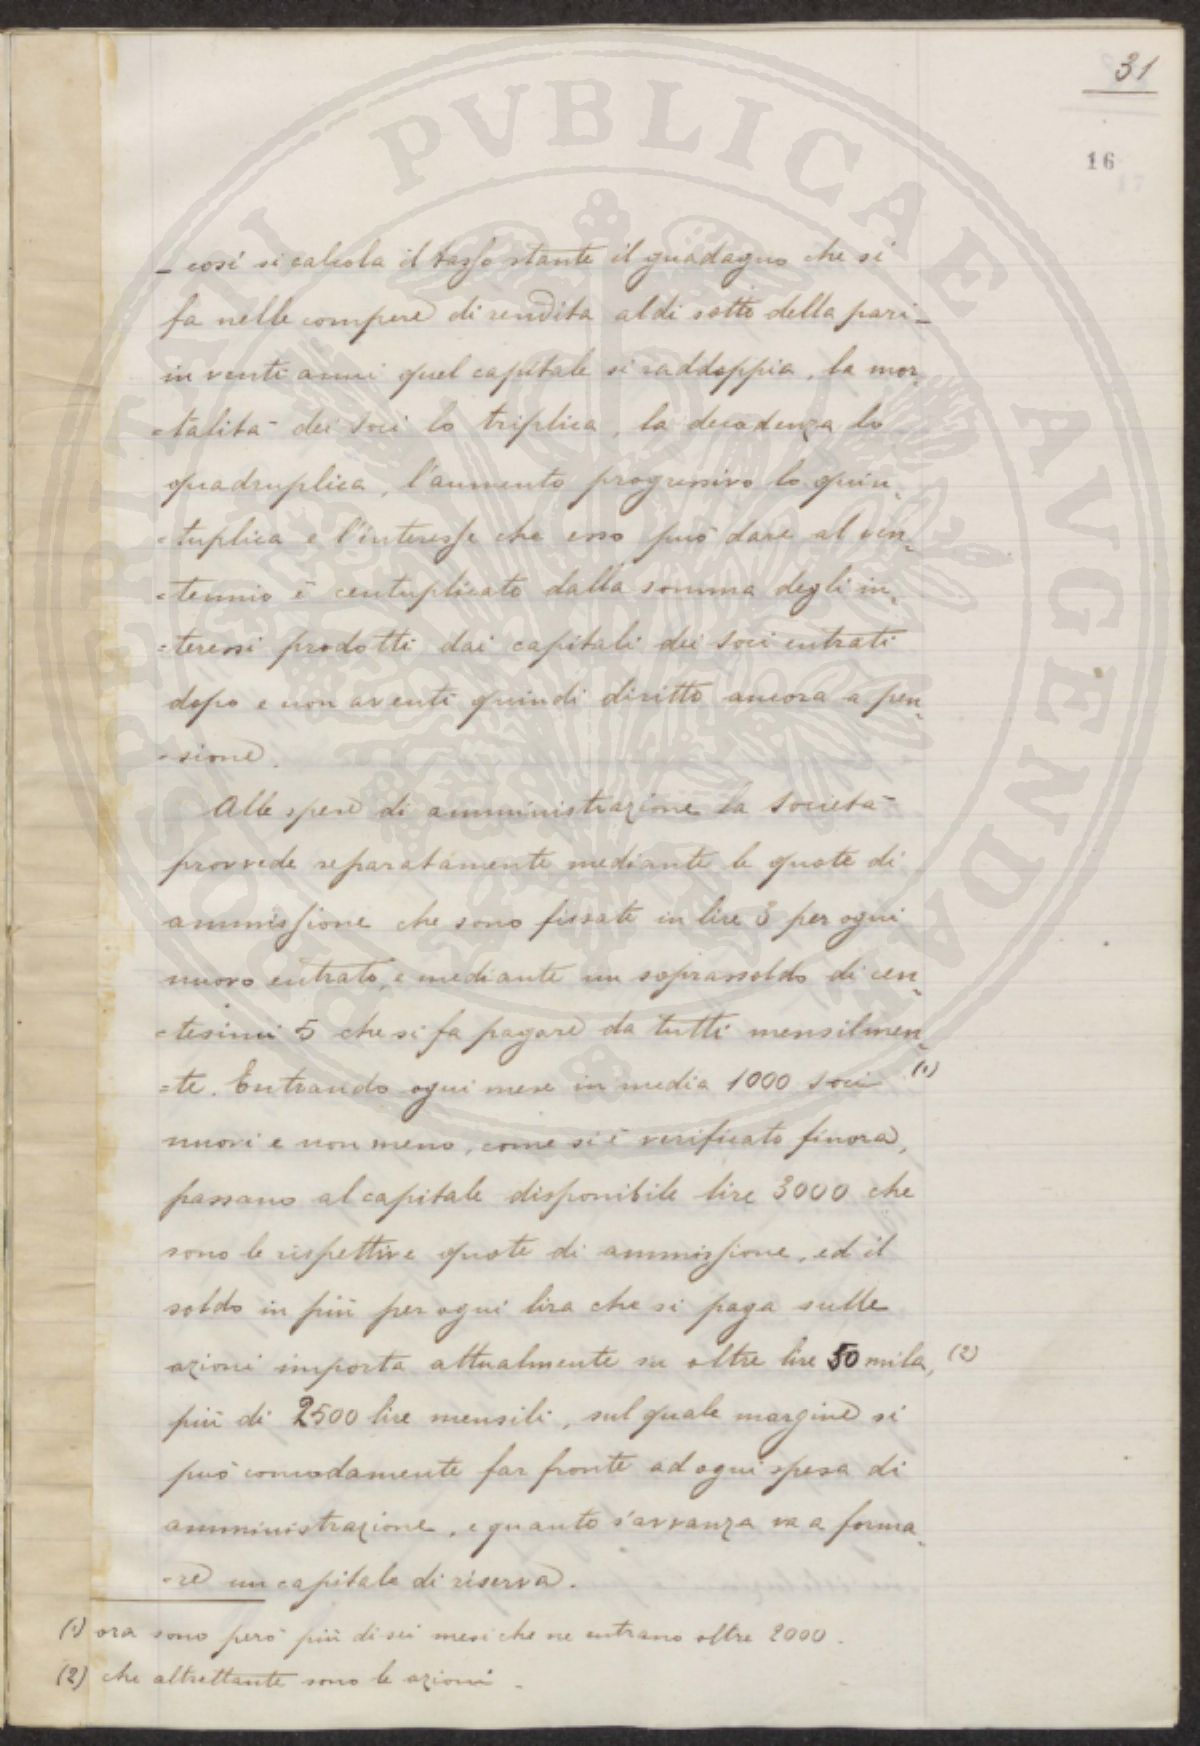 31
16
17
PVBLICAE AVGENDAE
PROSPERITATI
- così si calcola il tasso stante il guadagno che si
fa nelle compere di rendita al di sotto della pari -
in venti anni quel capitale si raddoppia, la mor=
=talità dei soci lo triplica, la decadenza lo
quadruplica, l'aumento progressivo lo quin=
=tuplica e l'interesse che esso può dare al ven=
=tennio è centuplicato dalla somma degli in=
=teressi prodotti dai capitali dei soci entrati
dopo e non aventi quindi diritto ancora a pen=
=sione.
Alle spese di amministrazione la Società
provvede separatamente mediante le quote di
ammissione che sono fissate in lire 3 per ogni
nuovo entrato, e mediante un soprassoldo di cen=
=tesimi 5 che si fa pagare da tutti mensilmen=
=te. Entrando ogni mese in media 1000 soci (1)
nuovi e non meno, come si è verificato finora,
passano al capitale disponibile lire 3000 che
sono le rispettive quote di ammissione, ed il
soldo in più per ogni lira che si paga sulle
azioni importa attualmente su oltre lire 50 mila, (2)
più di 2500 lire mensili, sul quale margine si
può comodamente far fronte ad ogni spesa di
amministrazione, e quanto s'avvanza va a forma=
=re un capitale di riserva.
(1) ora sono però più di sei mesi che ne entrano oltre 2000.
(2) che altrettante sono le azioni.